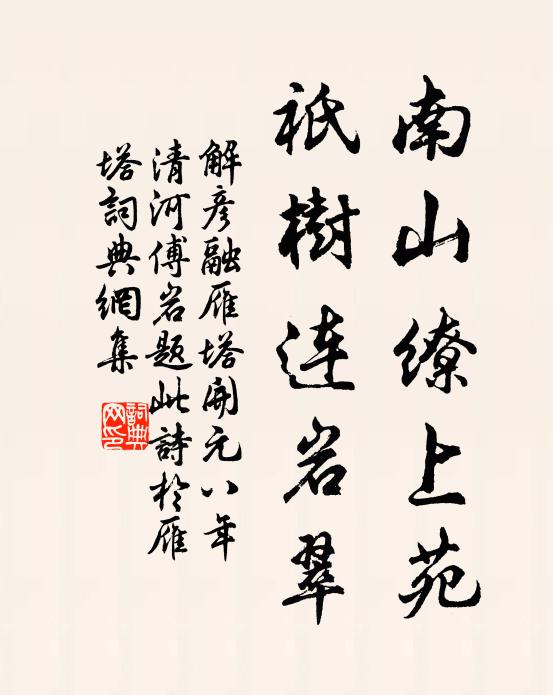 南山缭上苑
祇樹連岩翠
解彦融雁塔開元八年
清河傅岩題此詩於雁
塔詞典網集
詞典
网印